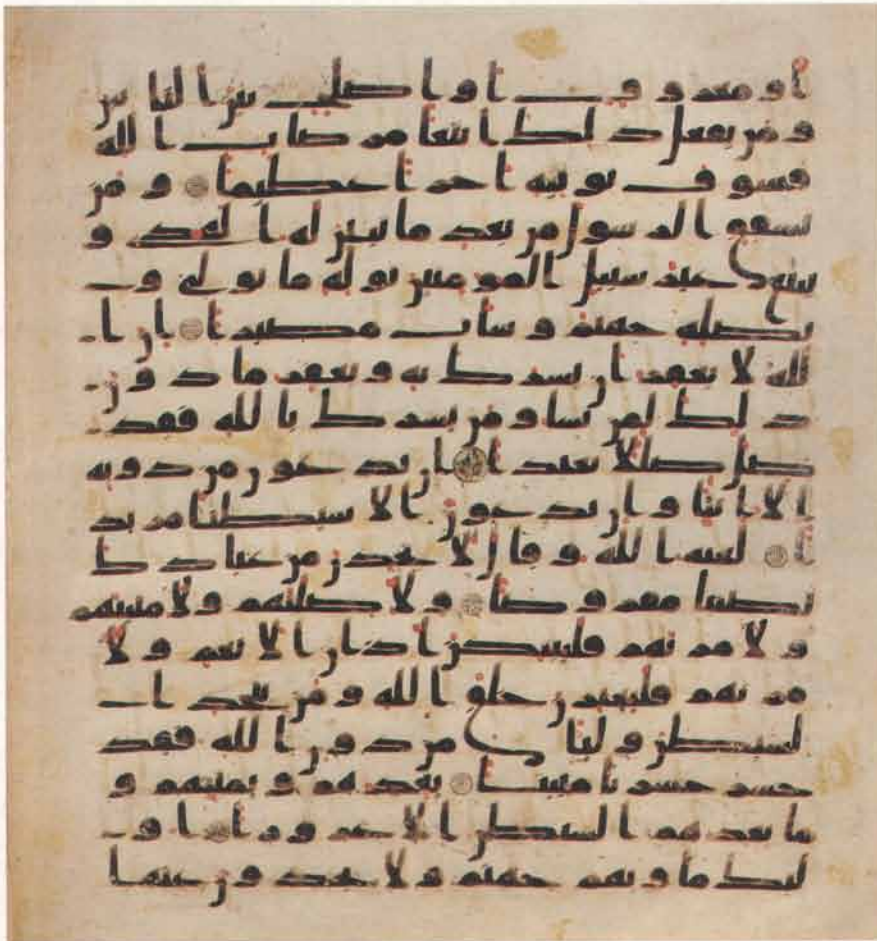 او معروف او اصلح بين الناس
ومن يفعل ذلك ابتغا مرضات الله
فسوف نوتيه اجرا عظيما ومن
يشقق الرسول من بعد ما تبين له الهدى و
يتبع غير سبيل المومنين نوله ما تولى و
نصله جهنم وسات مصيرا ان ا
لله لا يغفر ان يشرك به ويغفر ما دون
ذلك لمن يشا ومن يشرك بالله فقد
ضل ضللا بعيدا ان يدعون من دونه
الا انثا وان يدعون الا شيطنا مريد
ا لعنه الله وقال لاتخذن من عبادك
نصيبا مفروضا ولاضلنهم ولامنينهم
ولامرنهم فليبتكن اذان الانعم ولا
مرنهم فليغيرن خلق الله ومن يتخذ ا
لشيطن وليا من دون الله فقد
خسر خسرنا مبينا يعدهم ويمنيهم و
ما يعدهم الشيطن الا غرورا او
ليك ماويهم جهنم ولا يجدون عنها